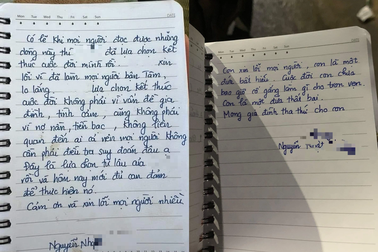 Mon Tue Wed Thu Fri Sat Sun
Có lẽ khi mọi người đọc được những
dòng này thì đã lựa chọn kết
thúc cuộc đời mình rồi. xin
lỗi vì đã làm mọi người bận tâm,
lo lắng. lựa chọn kết thúc
cuộc đời không phải vì vấn đề gia
đình, tình cảm, cũng không phải
vì nợ nần, tiền bạc, không liên
quan đến ai cả nên mọi người không
cần phải điều tra suy đoán đâu ạ.
Đây là lựa chọn từ lâu của
rồi và hôm nay mới đủ can đảm
để thực hiện nó.
Cảm ơn và xin lỗi mọi người nhiều
Nguyễn
Mon Tue Wed Thu Fri Sat Sun
Con xin lỗi mọi người, con là một
đứa bất hiếu. Cuộc đời con chưa
bao giờ cố gắng làm gì cho trọn vẹn.
Con là một đứa thất bại.
Mong gia đình tha thứ cho con
Nguyễn